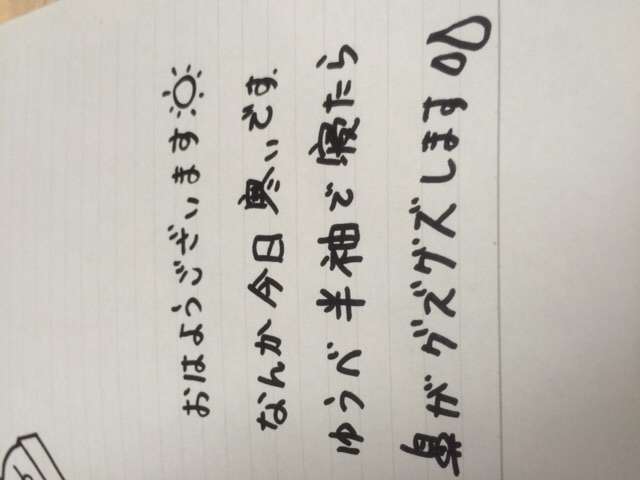 おはようございます☀
なんか今日寒いです.
ゆうべ半袖で寝たら
鼻がグズグズします